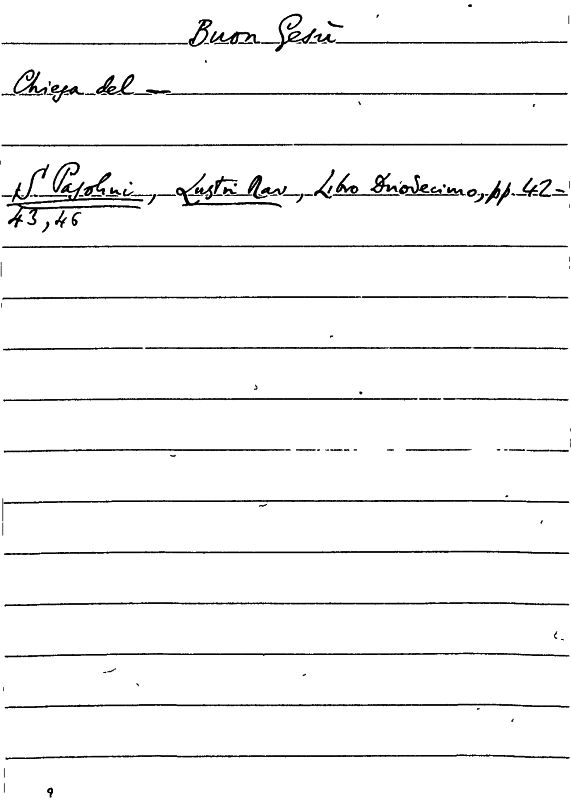 Buon Gesù
Chiesa del —
S. Pasolini, Lustri Rav, Libro Duodecimo, pp. 42-
43, 46